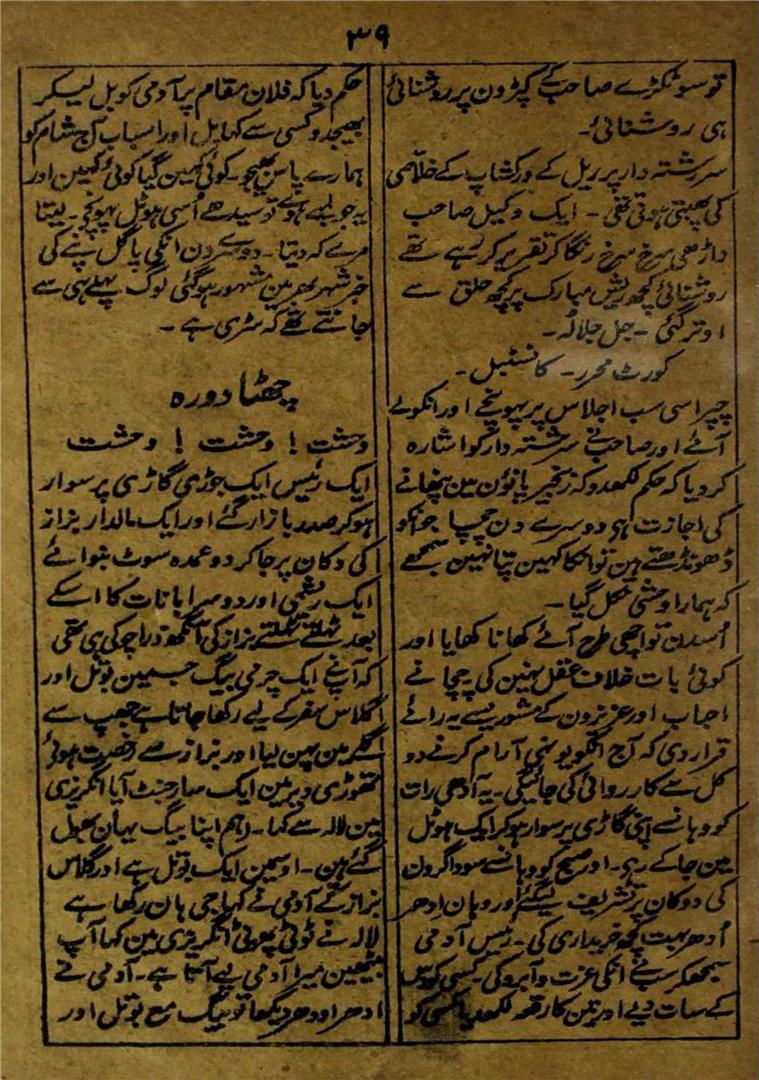 ۳۹
توسونکڑے صاحب کے کپڑون پر روشنائی
ہی روشنائی۔
سررشتہ دار پر ریل کے ورکشاپ کے خلاصی
کی پھبتی ہوتی تھی۔ ایک وکیل صاحب
داڑھی سرخ سرخ رنگا کر تقریر کر رہے تھے
روشنائی کچھ ریش مبارک پر کچھ حلق سے
اوتر گئی۔ جل جلالہ۔
کورٹ محرر۔ کانسٹبل۔
چپراسی سب اجلاس پر پہونچے اور انکو لے
آئے اور صاحب نے سررشتہ دار کو اشارہ
کر دیا کہ حکم لکھدو کہ زنجیر پاؤن مین پنھانے
کی اجازت ہی دوسرے دن چھپا جو انکو
ڈھونڈھتے ہین تو انکا کہین پتا نہین سمجھے
کہ ہمارا وحشی نکل گیا۔
اُسدن تو اچھی طرح آئے کھانا کھایا اور
کوئی بات خلاف عقل نہین کی چچا نے
احباب اور عزیزون کے مشورے سے یہ رائے
قرار دی کہ آج انکو یونہی آرام کرنے دو
کل سے کارروائی کی جائیگی۔ یہ آدھی رات
کو وہانسے اپنی گاڑی پر سوار ہو کر ایک ہوٹل
مین جا کے رہی۔ اور صبح کو وہانسے سوداگرون
کی دوکان پر تشریف لیگئے اور وہان اِدھر
اُدھر بہت کچھ خریداری کی۔ رئیس آدمی
سمجھکر سبنے انکی عزت و آبرو کی۔ کسی کو دس
کے سات دیے اور تین کا رقعہ لکھدیا کسی کو
حکم دیا کہ فلان مقام پر آدمی کو بل لیکر
بھیجدو کسی سے کہا بل اور اسباب آج شام کو
ہمارے پاس بھیجو۔ کوئی کہین گیا کوئی کہین اور
یہ جو لیے ہوے تو سیدھے اُسی ہوٹل پہونچے۔ لیتا
مرے کہ دیتا۔ دوسرے دن انکی پاگل پنے کی
خبر شہر بھر مین مشہور ہو گئی لوگ پہلے ہی سے
جانتے تھے کہ سڑی ہے۔
چھٹا دورہ
وحشت! وحشت! وحشت
ایک رئیس ایک جوڑی گاڑی پر سوار
ہو کر صدر بازار گئے اور ایک مالدار بزاز
کی دکان پر جا کر دو عمدہ سوٹ بنوائے
ایک ریشمی اور دوسرا بانات کا اسکے
بعد ٹہلتے ٹہلتے بزاز کی آنکھ ذرا چوکی ہی تھی
کہ آپنے ایک چرمی بیگ جسمین بوتل اور
گلاس سفر کے لیے رکھا جاتا ہے جھپ سے
انگرمین پہن لیا اور بزاز سے رخصت ہوئے
تھوڑی دیر مین ایک سارجنٹ آیا انگریزی
مین لالہ سے کہا۔ ہم اپنا بیگ یہان بھول
گئے ہین۔ اوسمین ایک بوتل ہے اور گلاس
بزاز کے آدمی نے کہا جی ہان رکھا ہے
لالہ نے ٹوٹی پھوٹی انگریزی مین کہا آپ
بیٹھین میرا آدمی لیے آتا ہے۔ آدمی نے
ادھر اودھر دیکھا تو بیگ مع بوتل اور